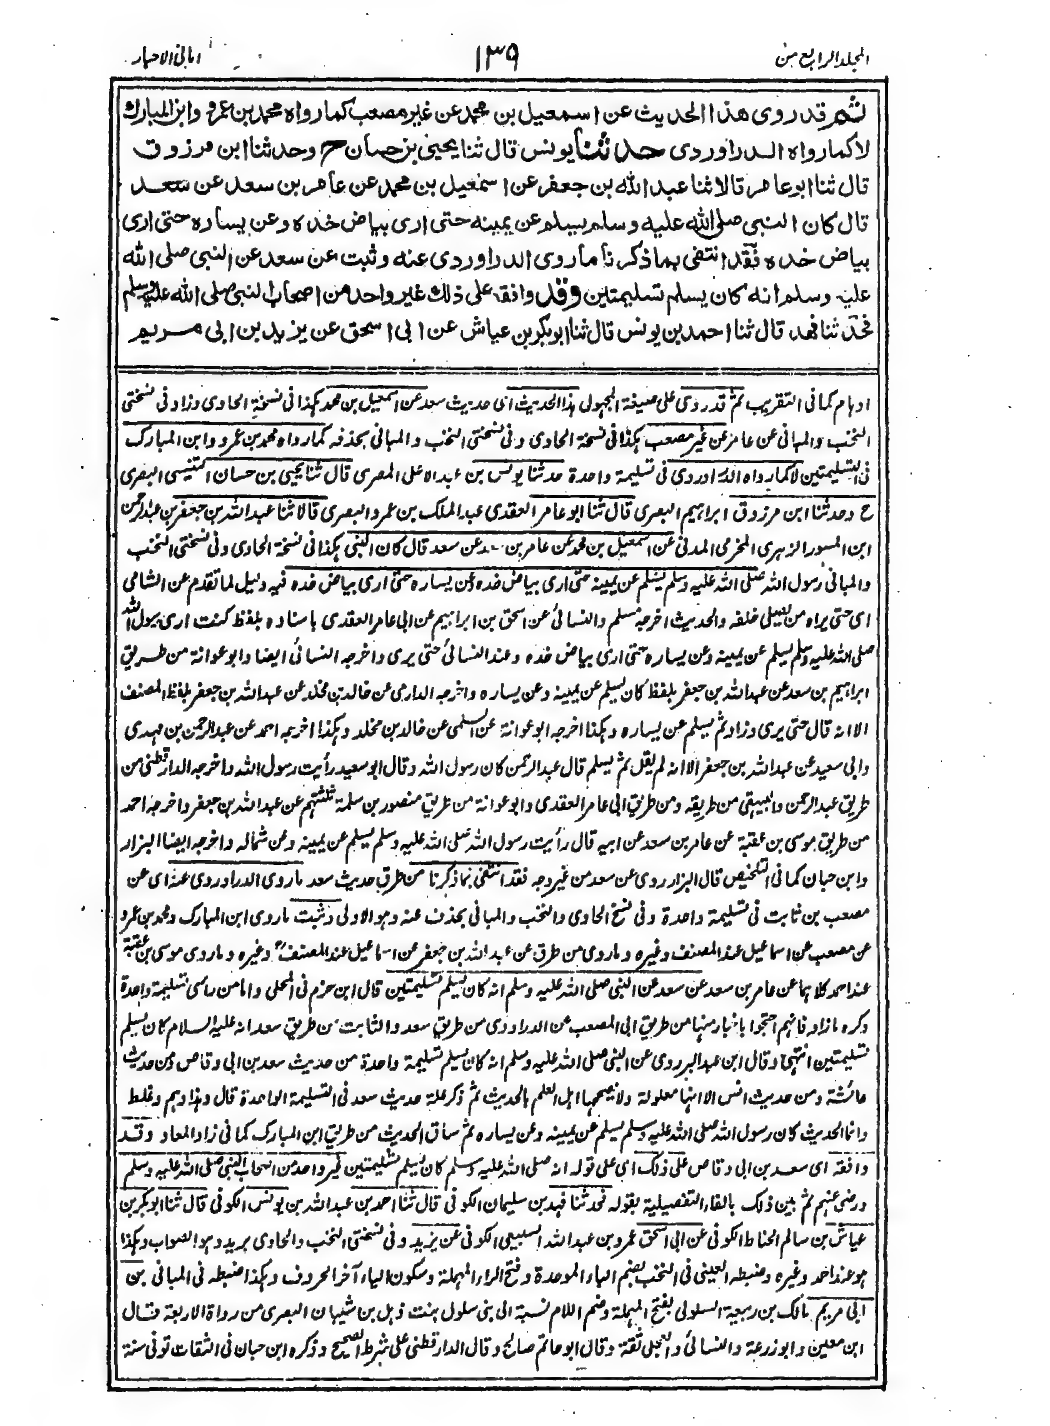 المجلد الرابع من ١٣٩ امانى الاحبار
ثم قد روى هذا الحديث عن اسمعيل بن محمد عن غير مصعب كما رواه محمد بن عمرو وابن المبارك
لا كما رواه الدراوردى حدثنا يونس قال ثنا يحيى بن حسان ح وحدثنا ابن مرزوق
قال ثنا ابو عامر قالا ثنا عبد الله بن جعفر عن اسمعيل بن محمد عن عامر بن سعد عن سعد
قال كان النبى صلى الله عليه وسلم يسلم عن يمينه حتى ارى بياض خده وعن يساره حتى ارى
بياض خده فقد انتفى بما ذكرنا ما روى الدراوردى عنه وثبت عن سعد عن النبى صلى الله
عليه وسلم انه كان يسلم تسليمتين وقد وافقه على ذلك غير واحد من اصحاب النبى صلى الله عليه وسلم
فحدثنا فهد قال ثنا احمد بن يونس قال ثنا ابو بكر بن عياش عن ابى اسحق عن يزيد بن ابى مريم
اوهام كما فى التقريب ثم قد روى على صيغة المجهول هذا الحديث اى حديث سعد عن اسمعيل بن محمد هكذا فى نسخة الحاوى وزاد فى نسختى
النخب والمبانى عن عامر عن غير مصعب هكذا فى نسخة الحاوى وفى نسختى النخب والمبانى بحذفه كما رواه محمد بن عمرو وابن المبارك
فى التسليمتين لا كما رواه الدراوردى فى تسليمة واحدة حدثنا يونس بن عبد الاعلى المصرى قال ثنا يحيى بن حسان التنيسى البصرى
ح وحدثنا ابن مرزوق ابراهيم البصرى قال ثنا ابو عامر العقدى عبد الملك بن عمرو البصرى قالا ثنا عبد الله بن جعفر بن عبد الرحمن
ابن المسور الزهرى المخرمى المدنى عن اسمعيل بن محمد عن عامر بن سعد عن سعد قال كان النبى هكذا فى نسخة الحاوى وفى نسختى النخب
والمبانى رسول الله صلى الله عليه وسلم يسلم عن يمينه حتى ارى بياض خده وعن يساره حتى ارى بياض خده فيه دليل لما تقدم عن الشامى
اى حتى يراه من يصلى خلفه والحديث اخرجه مسلم والنسائى عن اسحق بن ابراهيم عن ابى عامر العقدى باسناده بلفظ كنت ارى رسول الله
صلى الله عليه وسلم يسلم عن يمينه وعن يساره حتى ارى بياض خده وعند النسائى حتى يرى واخرجه النسائى ايضا وابو عوانة من طريق
ابراهيم بن سعد عن عبد الله بن جعفر بلفظ كان يسلم عن يمينه وعن يساره واخرجه الدارمى عن خالد بن مخلد عن عبد الله بن جعفر بلفظ المصنف
الا انه قال حتى يرى وزاد ثم يسلم عن يساره وهكذا اخرجه ابو عوانة عن السلمى عن خالد بن مخلد وهكذا اخرجه احمد عن عبد الرحمن بن مهدى
وابى سعيد عن عبد الله بن جعفر الا انه لم يقل ثم يسلم قال عبد الرحمن كان رسول الله وقال ابو سعيد رأيت رسول الله واخرجه الدارقطنى من
طريق عبد الرحمن والبيهقى من طريقه ومن طريق ابى عامر العقدى وابو عوانة من طريق منصور بن سلمة ثلثتهم عن عبد الله بن جعفر واخرجه احمد
من طريق موسى بن عقبة عن عامر بن سعد عن ابيه قال رأيت رسول الله صلى الله عليه وسلم يسلم عن يمينه وعن شماله واخرجه ايضا البزار
وابن حبان كما فى التلخيص قال البزار روى عن سعد من غير وجه فقد انتفى بما ذكرنا من طرق حديث سعد ما روى الدراوردى عنه اى عن
مصعب بن ثابت فى تسليمة واحدة وفى نسخ الحاوى والنخب والمبانى بحذف عنه وهو الاولى وثبت بما روى ابن المبارك ومحمد بن عمرو
عن مصعب عن اسماعيل عند المصنف وغيره وما روى من طرق عن عبد الله بن جعفر عن اسماعيل عند المصنف وغيره وما روى موسى بن عقبة
عند احمد كلاهما عن عامر بن سعد عن سعد عن النبى صلى الله عليه وسلم انه كان يسلم تسليمتين قال ابن حزم فى المحلى واما من رأى تسليمة واحدة
وكره ما زاد فانهم احتجوا باخبار منها من طريق ابى المصعب عن الدراوردى من طريق سعد والثابت من طريق سعد انه عليه السلام كان يسلم
تسليمتين انتهى وقال ابن عبد البر روى عن النبى صلى الله عليه وسلم انه كان يسلم تسليمة واحدة من حديث سعد بن ابى وقاص ومن حديث
عائشة ومن حديث انس الا انها معلولة ولا يصححها اهل العلم بالحديث ثم ذكر علة حديث سعد فى التسليمة الواحدة قال وهذا وهم وغلط
وانما الحديث كان رسول الله صلى الله عليه وسلم يسلم عن يمينه وعن يساره ثم ساق الحديث من طريق ابن المبارك كما فى زاد المعاد وقد
وافقه اى سعد بن ابى وقاص على ذلك اى على قوله انه صلى الله عليه وسلم كان يسلم تسليمتين غير واحد من اصحاب النبى صلى الله عليه وسلم
ورضى عنهم ثم بين ذلك بالفاء التفصيلية بقوله فحدثنا فهد بن سليمان الكوفى قال ثنا احمد بن عبد الله بن يونس الكوفى قال ثنا ابو بكر بن
عياش بن سالم الحناط الكوفى عن ابى اسحق عمرو بن عبد الله السبيعى الكوفى عن يزيد وفى نسختى النخب والحاوى بريد وهو الصواب وهكذا
هو عند احمد وغيره وضبطه العينى فى النخب بضم الباء الموحدة وفتح الراء المهملة وسكون الياء آخر الحروف وهكذا ضبطه فى المبانى بن
ابى مريم مالك بن ربيعة السلولى بفتح المهملة وضم اللام نسبة الى بنى سلول بنت ذهل بن شيبان البصرى من رواة الاربعة قال
ابن معين وابو زرعة والنسائى والعجلى ثقة وقال ابو حاتم صالح وقال الدارقطنى على شرط الصحيح وذكره ابن حبان فى الثقات توفى سنة